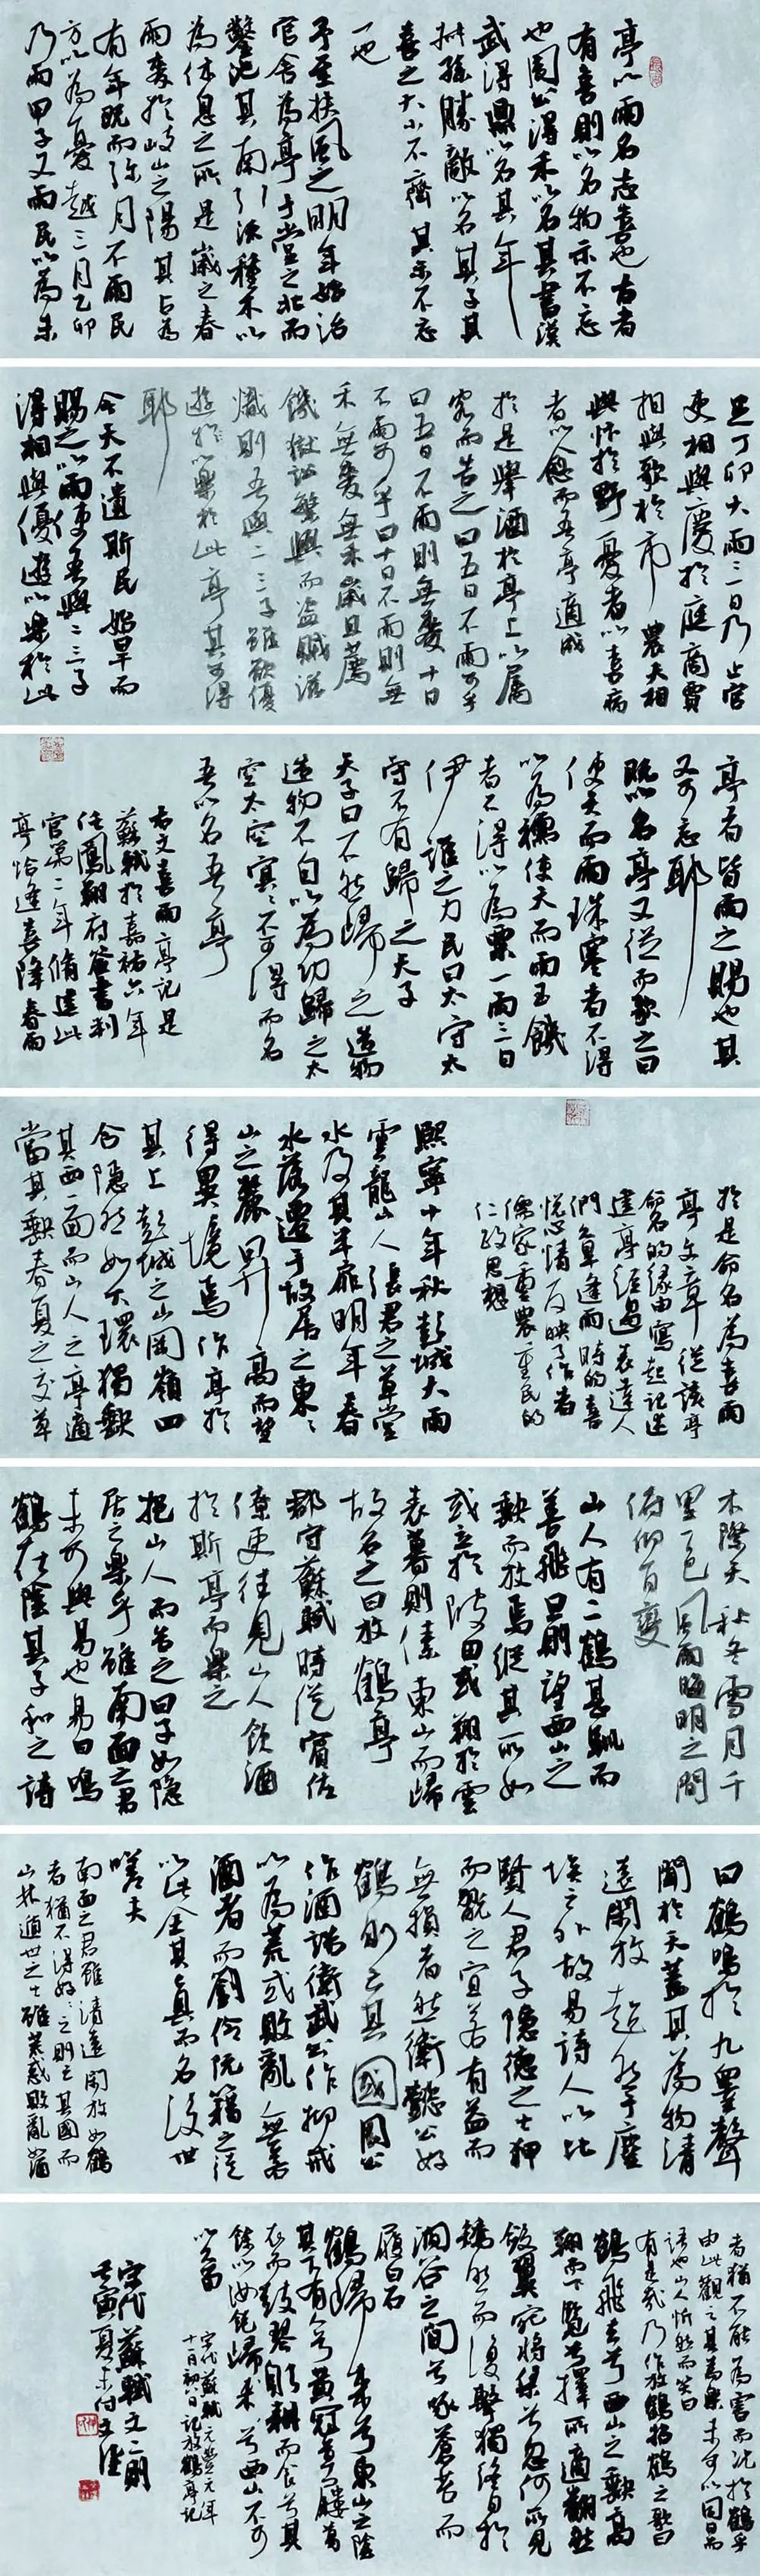 亭以雨名志喜也古者
有喜則以名物示不忘
也周公得禾以名其書漢
武得鼎以名其年
叔孫勝敵以名其子其
喜之大小不齊其示不忘
一也
予至扶風之明年始治
官舍為亭于堂之北而
鑿池其南引流種木以
為休息之所是歲之春
雨麥於岐山之陽其占為
有年既而弥月不雨民
方以為憂越三月乙卯
乃雨甲子又雨民以為未
足丁卯大雨三日乃止官
吏相與慶於庭商賈
相與歌於市農夫相
與忭於野憂者以喜病
者以愈而吾亭適成
於是舉酒於亭上以屬
客而告之曰五日不雨可乎
曰五日不雨則無麥十日
不雨可乎曰十日不雨則無
禾無麥無禾歲且薦
饑獄訟繁興而盜賊滋
熾則吾與二三子雖欲優
遊於以樂於此亭其可得
耶
今天不遺斯民始旱而
賜之以雨使吾與二三子
得相與優遊以樂於此
亭者皆雨之賜也其
又可忘耶
既以名亭又從而歌之曰
使天而雨珠寒者不得
以為襦使天而雨玉饑
者不得以為粟一雨三日
伊誰之力民曰太守太
守不有歸之天子
天子曰不然歸之造物
造物不自以為功歸之太
空太空冥冥不可得而名
吾以名吾亭
右文喜雨亭記是
蘇軾於嘉祐六年
任鳳翔府簽書判
官第二年脩建此
亭恰逢喜降春雨
於是命名為喜雨
亭文章從該亭
命名的緣由寫起記述
建亭經過表達人
們久旱逢雨時的喜
悅心情反映了作者
儒家重農重民的
仁政思想
熙寧十年秋彭城大雨
雲龍山人張君之草堂
水及其半扉明年春
水落遷于故居之東
山之麓升高而望
得異境焉作亭於
其上彭城之山岡嶺四
合隱然如大環獨缺
其西一面而山人之亭適
當其缺春夏之交草
木際天秋冬雪月千
里一色風雨晦明之間
俯仰百變
山人有二鶴甚馴而
善飛旦則望西山之
缺而放焉縱其所如
或立於陂田或翔於雲
表暮則傃東山而歸
故名之曰放鶴亭
郡守蘇軾時從賓佐
僚吏往見山人飲酒
於斯亭而樂之
挹山人而告之曰子知隱
居之樂乎雖南面之君
未可與易也易曰鳴
鶴在陰其子和之詩
曰鶴鳴於九皋聲
聞於天蓋其為物清
遠閑放超然于塵
埃之外故易詩人以比
賢人君子隱德之士狎
而翫之宜若有益而
無損者然衛懿公好
鶴則亡其國周公
作酒誥衛武公作抑戒
以為荒或敗亂無若
酒者而劉伶阮籍之徒
以此全其真而名後世
嗟夫
南面之君雖清遠閑放如鶴
者猶不得好之則亡其國而
山林遁世之士雖荒惑敗亂如酒
者猶不能為害而況於鶴乎
由此觀之其為樂未可以同日而
語也山人忻然而笑曰
有是哉乃作放鶴招鶴之歌曰
鶴飛去兮西山之缺高
翔而下覽兮擇所適翻然
斂翼宛將集兮忽何所見
矯然而復擊獨終日於
澗谷之間兮啄蒼苔而
履白石
鶴歸來兮東山之陰
其下有人兮黃冠草屨葛
衣而鼓琴躬耕而食兮其
餘以汝飽歸來兮西山不可
以久留
宋代蘇軾元豐元年
十一月初八日記放鶴亭記
宋代蘇軾文二則
壬寅夏